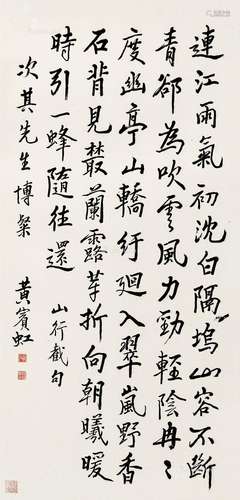 連江雨氣初沈白隔塢山容不斷
青郤為吹雲風力勁輕陰冉冉
度幽亭山轎紆迴入翠嵐野香
石背見叢蘭露芽折向朝曦暖
時引一蜂隨往還
山行截句
次其先生博粲
黃賓虹